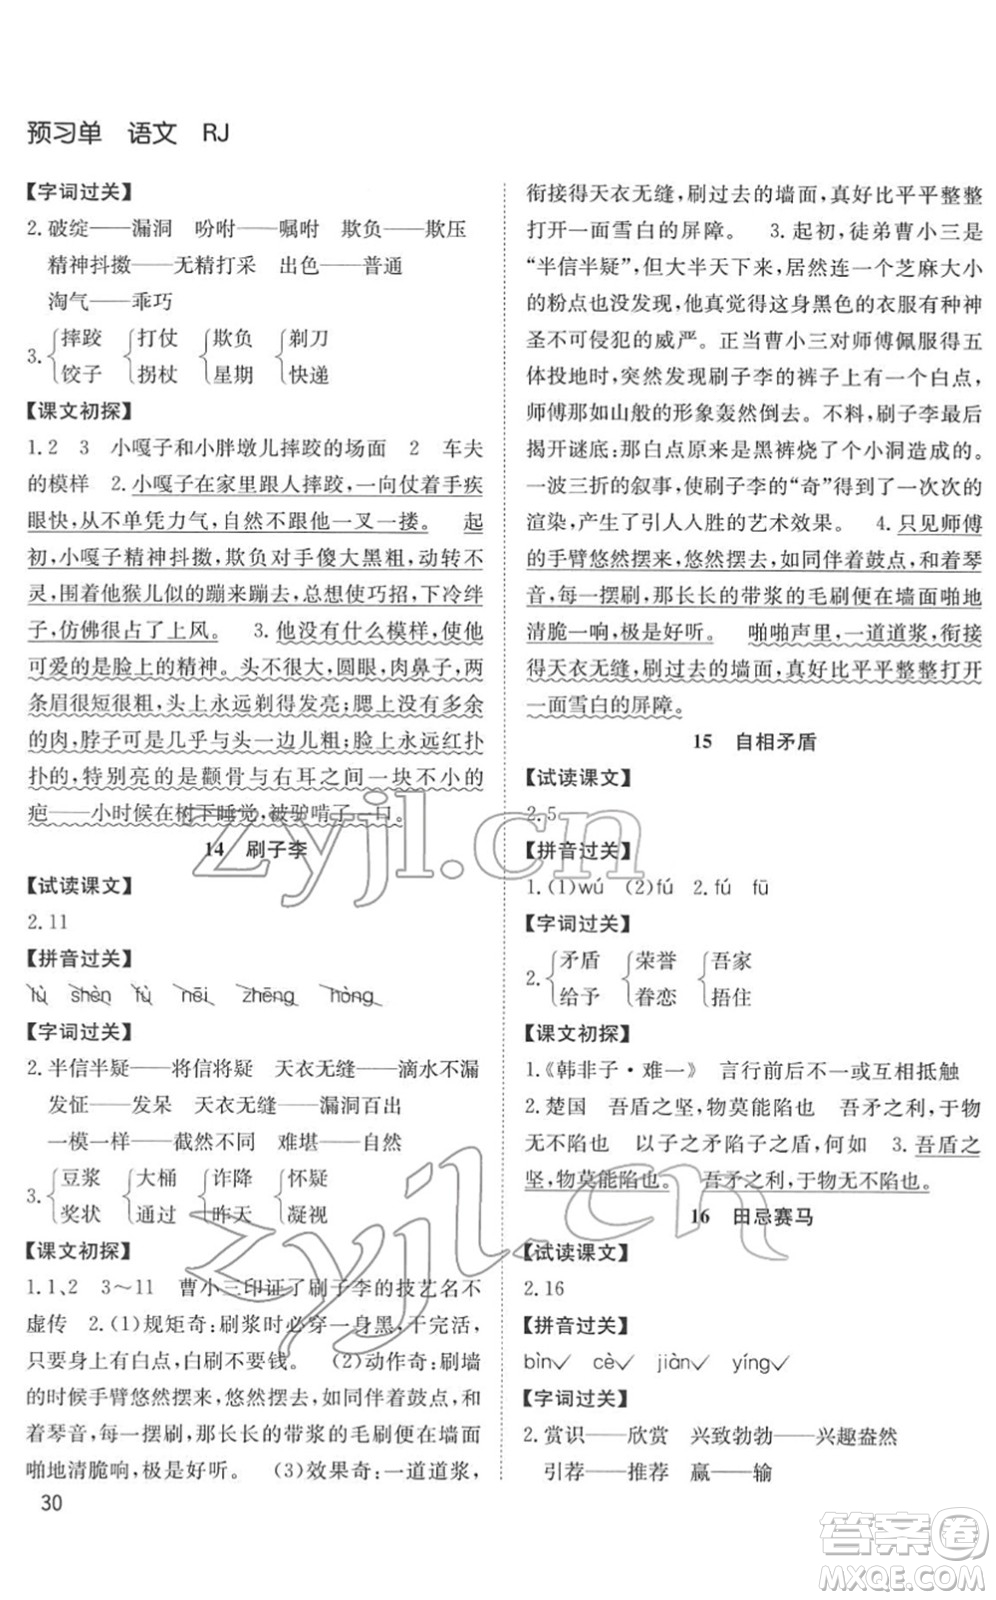 预习单 语文 RJ
【字词过关】
2.破绽——漏洞 吩咐——嘱咐 欺负——欺压
精神抖擞——无精打采 出色——普通
淘气——乖巧
3. 摔跤 打仗 欺负 剃刀
饺子 拐杖 星期 快递
【课文初探】
1.2 3 小嘎子和小胖墩儿摔跤的场面 2 车夫
的模样 2.小嘎子在家里跟人摔跤,一向仗着手疾
眼快,从不单凭力气,自然不跟他一叉一搂。 起
初,小嘎子精神抖擞,欺负对手傻大黑粗,动转不
灵,围着他猴儿似的蹦来蹦去,总想使巧招,下冷绊
子,仿佛很占了上风。 3.他没有什么模样,使他
可爱的是脸上的精神。头不很大,圆眼,肉鼻子,两
条眉很短很粗,头上永远剃得发亮;腮上没有多余
的肉,脖子可是几乎与头一边儿粗;脸上永远红扑
扑的,特别亮的是颧骨与右耳之间一块不小的
疤——小时候在树下睡觉,被驴啃了一口。
14 刷子李
【试读课文】
2.11
【拼音过关】
lù shèn fù nēi zhēng hòng
【字词过关】
2.半信半疑——将信将疑 天衣无缝——滴水不漏
发怔——发呆 天衣无缝——漏洞百出
一模一样——截然不同 难堪——自然
3. 豆浆 大桶 诈降 怀疑
奖状 通过 昨天 凝视
【课文初探】
1.1、2 3～11 曹小三印证了刷子李的技艺名不
虚传 2.(1)规矩奇:刷浆时必穿一身黑,干完活,
只要身上有白点,白刷不要钱。 (2)动作奇:刷墙
的时候手臂悠然摆来,悠然摆去,如同伴着鼓点,和
着琴音,每一摆刷,那长长的带浆的毛刷便在墙面
啪地清脆响,极是好听。 (3)效果奇:一道道浆,
30
衔接得天衣无缝,刷过去的墙面,真好比平平整整
打开一面雪白的屏障。 3.起初,徒弟曹小三是
“半信半疑”,但大半天下来,居然连一个芝麻大小
的粉点也没发现,他真觉得这身黑色的衣服有种神
圣不可侵犯的威严。正当曹小三对师傅佩服得五
体投地时,突然发现刷子李的裤子上有一个白点,
师傅那如山般的形象轰然倒去。不料,刷子李最后
揭开谜底:那白点是黑裤烧了个小洞造成的。
一波三折的叙事,使刷子李的“奇”得到了一次次的
渲染,产生了引人入胜的艺术效果。 4.只见师傅
的手臂悠然摆来,悠然摆去,如同伴着鼓点,和着琴
音,每一摆刷,那长长的带浆的毛刷便在墙面啪地
清脆一响,极是好听。 啪啪声里,一道道浆,衔接
得天衣无缝,刷过去的墙面,真好比平平整整打开
一面雪白的屏障。
15 自相矛盾
【试读课文】
2.5
【拼音过关】
1.(1)wú (2)fú 2.fú fū
【字词过关】
2. 矛盾 荣誉 吾家
给予 眷恋 捂住
【课文初探】
1.《韩非子·难一》 言行前后不一或互相抵触
2.楚国 吾盾之坚,物莫能陷也 吾矛之利,于物
无不陷也 以子之矛陷子之盾,何如 3.吾盾之
坚,物莫能陷也。 吾矛之利,于物无不陷也。
16 田忌赛马
【试读课文】
2.16
【拼音过关】
bìn✓ cè✓ jiàn✓ yíng✓
【字词过关】
2.赏识——欣赏 兴致勃勃——兴趣盎然
引荐——推荐 赢——输
zyjl.cn
zyjl.cn
答案圈
MXQE.COM